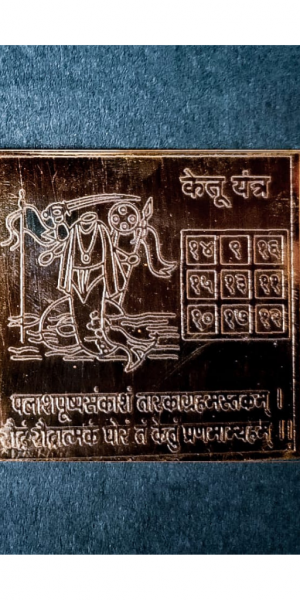 केतू यंत्र
१४ ९ १६
१५ १३ ११
१० १७ १२
पलाशपूष्पसंकाशं तारकाग्रहमस्तकम् ।
रौद्रं रौद्रात्मकं घोरं तं केतुं प्रणमाम्यहम् ॥